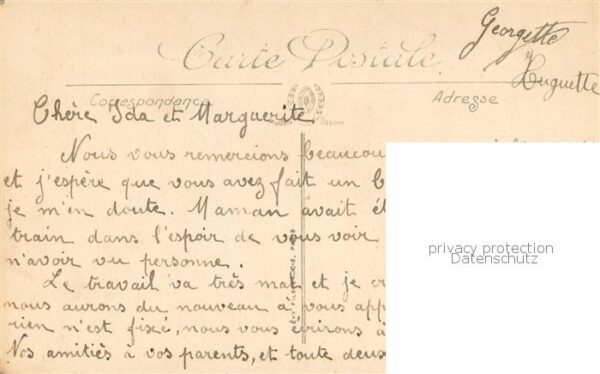 Georgette
Huguette
Carte Postale
Correspondance
Adresse
Chère Ida et Marguerite
Nous vous remercions beaucou
et j'espère que vous avez fait un
je m'en doute. Maman avait ét
train dans l'espoir de vous voir
n'avoir vu personne.
Le travail va très mal et je cr
nous aurons du nouveau à vous app
rien n'est fixé, nous vous écrirons à
Nos amitiés à vos parents, et toute deux
privacy protection
Datenschutz